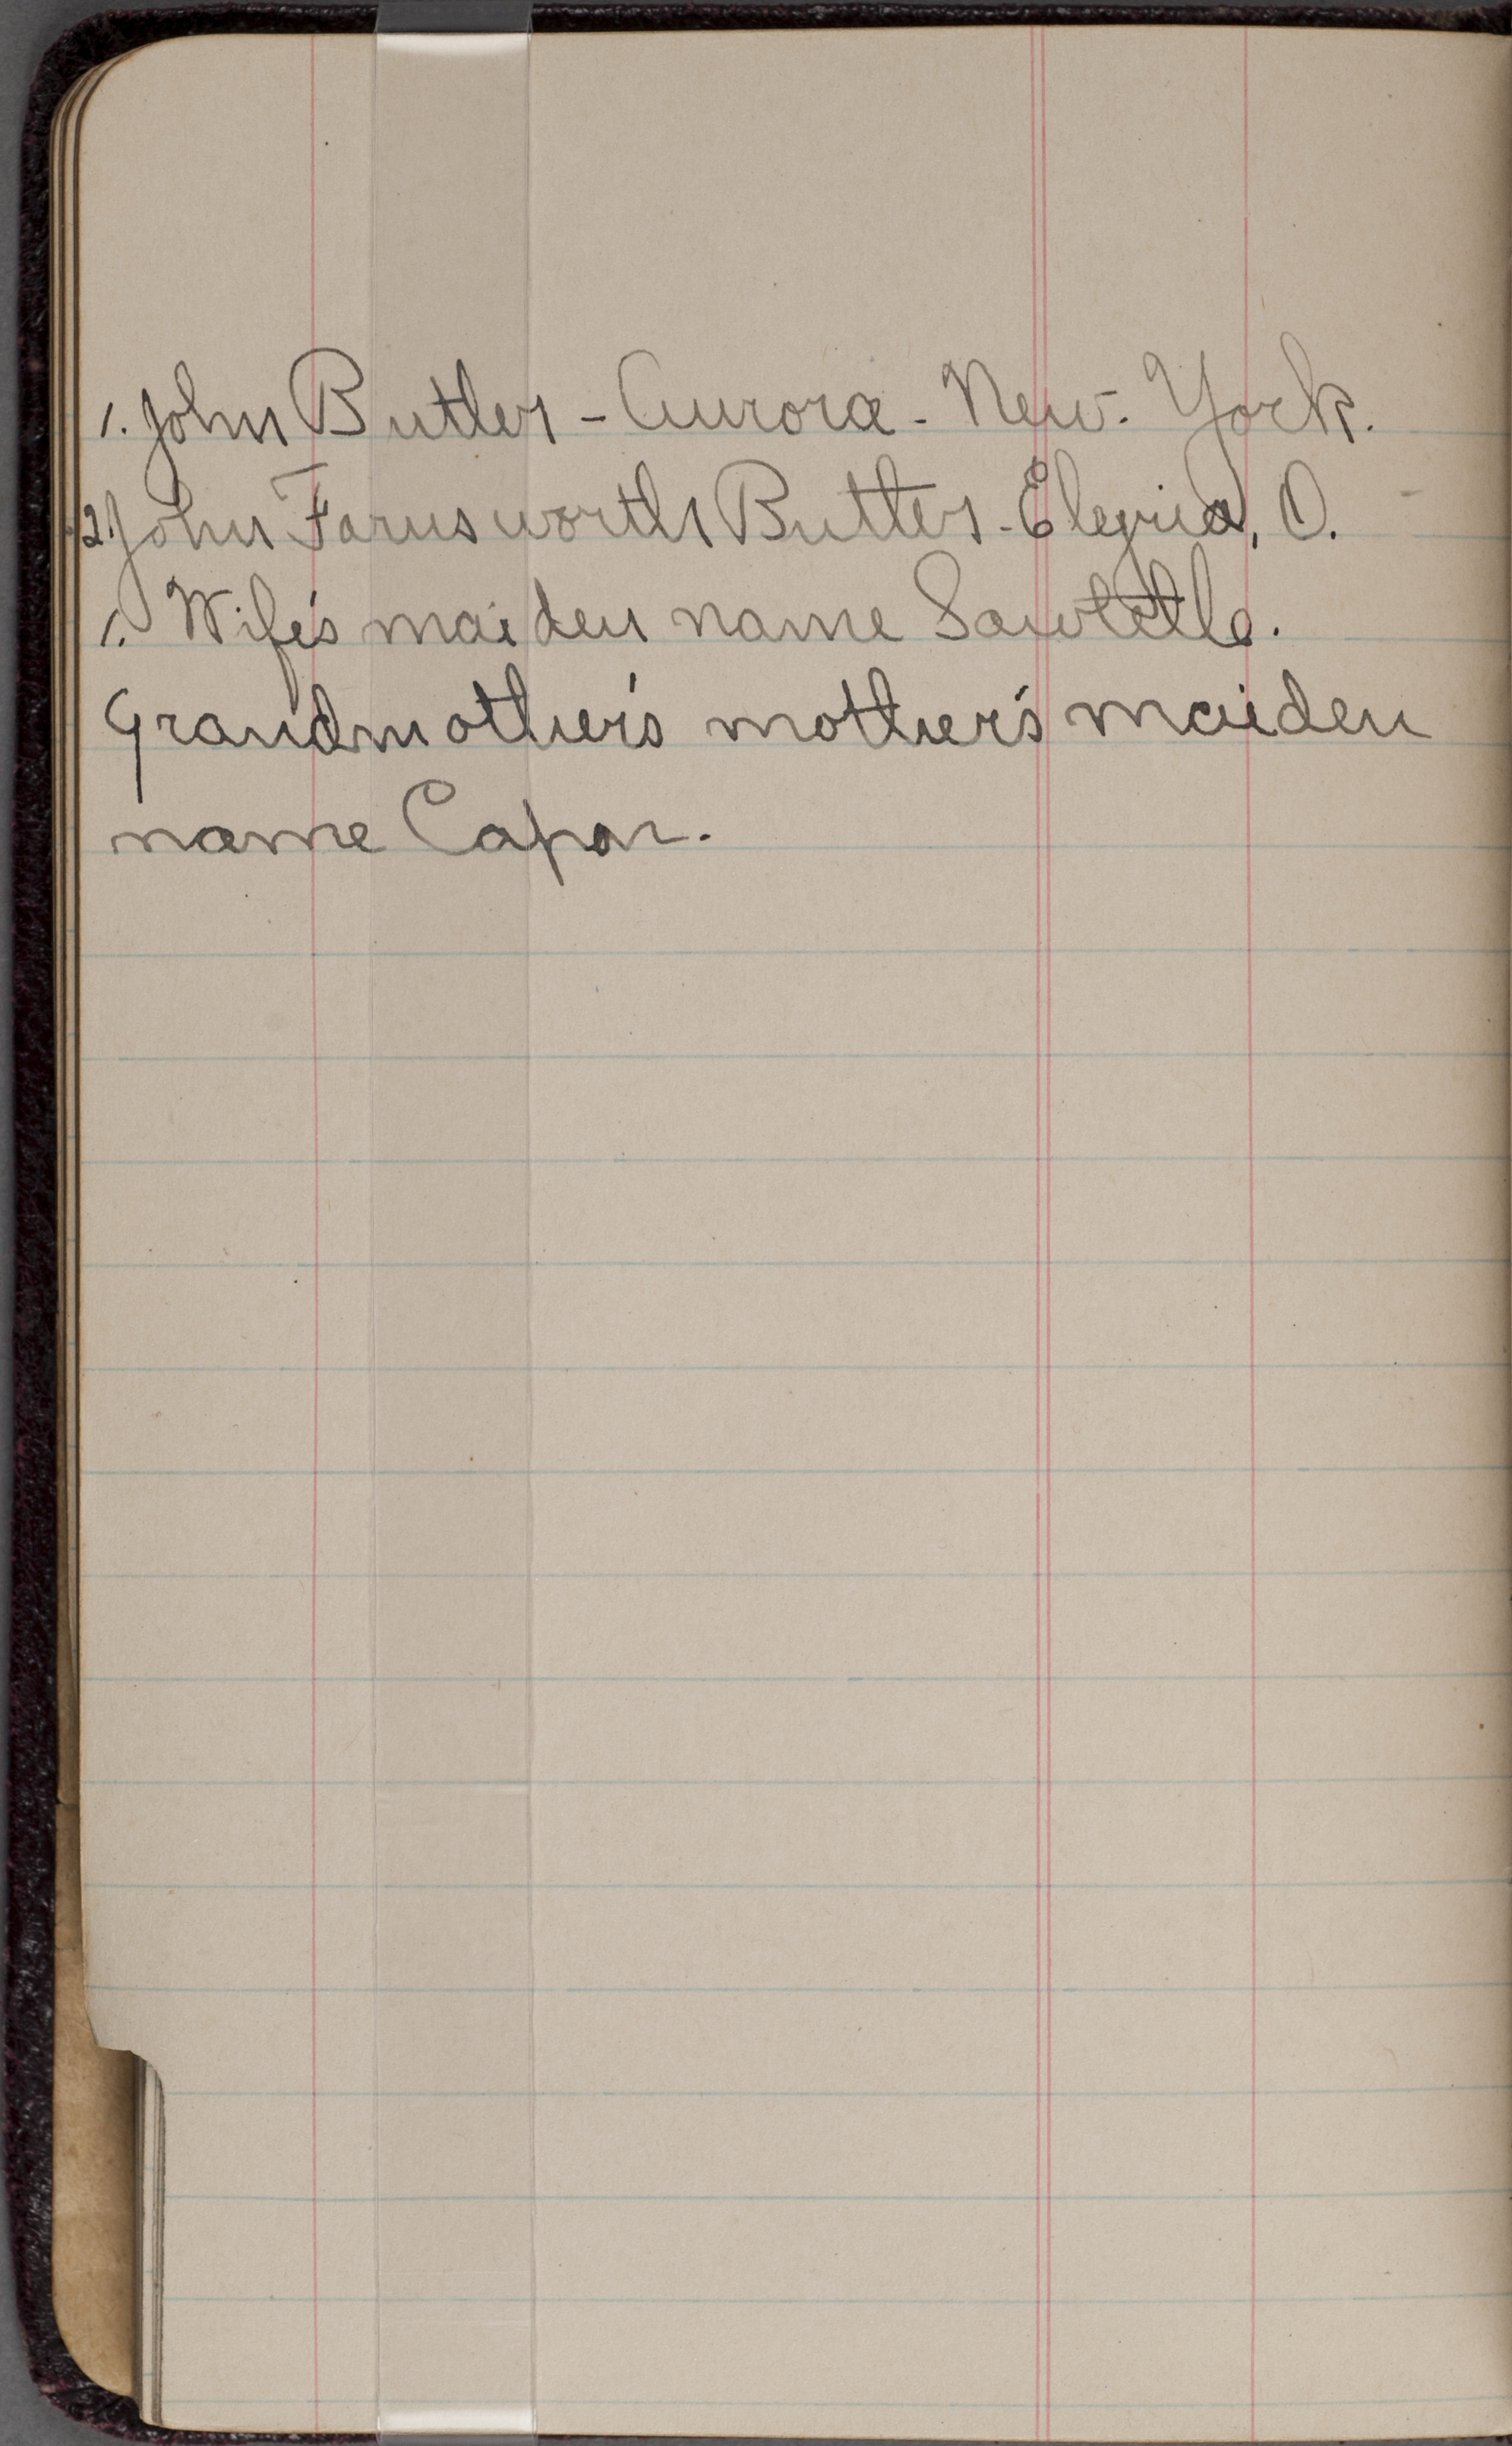 1. John Butler - Aurora - New. York.
2. John Farnsworth Butler - Elegria, O.
1. Wife's maiden name Sawtelle.
Grandmother's mother's maiden
name Capon.